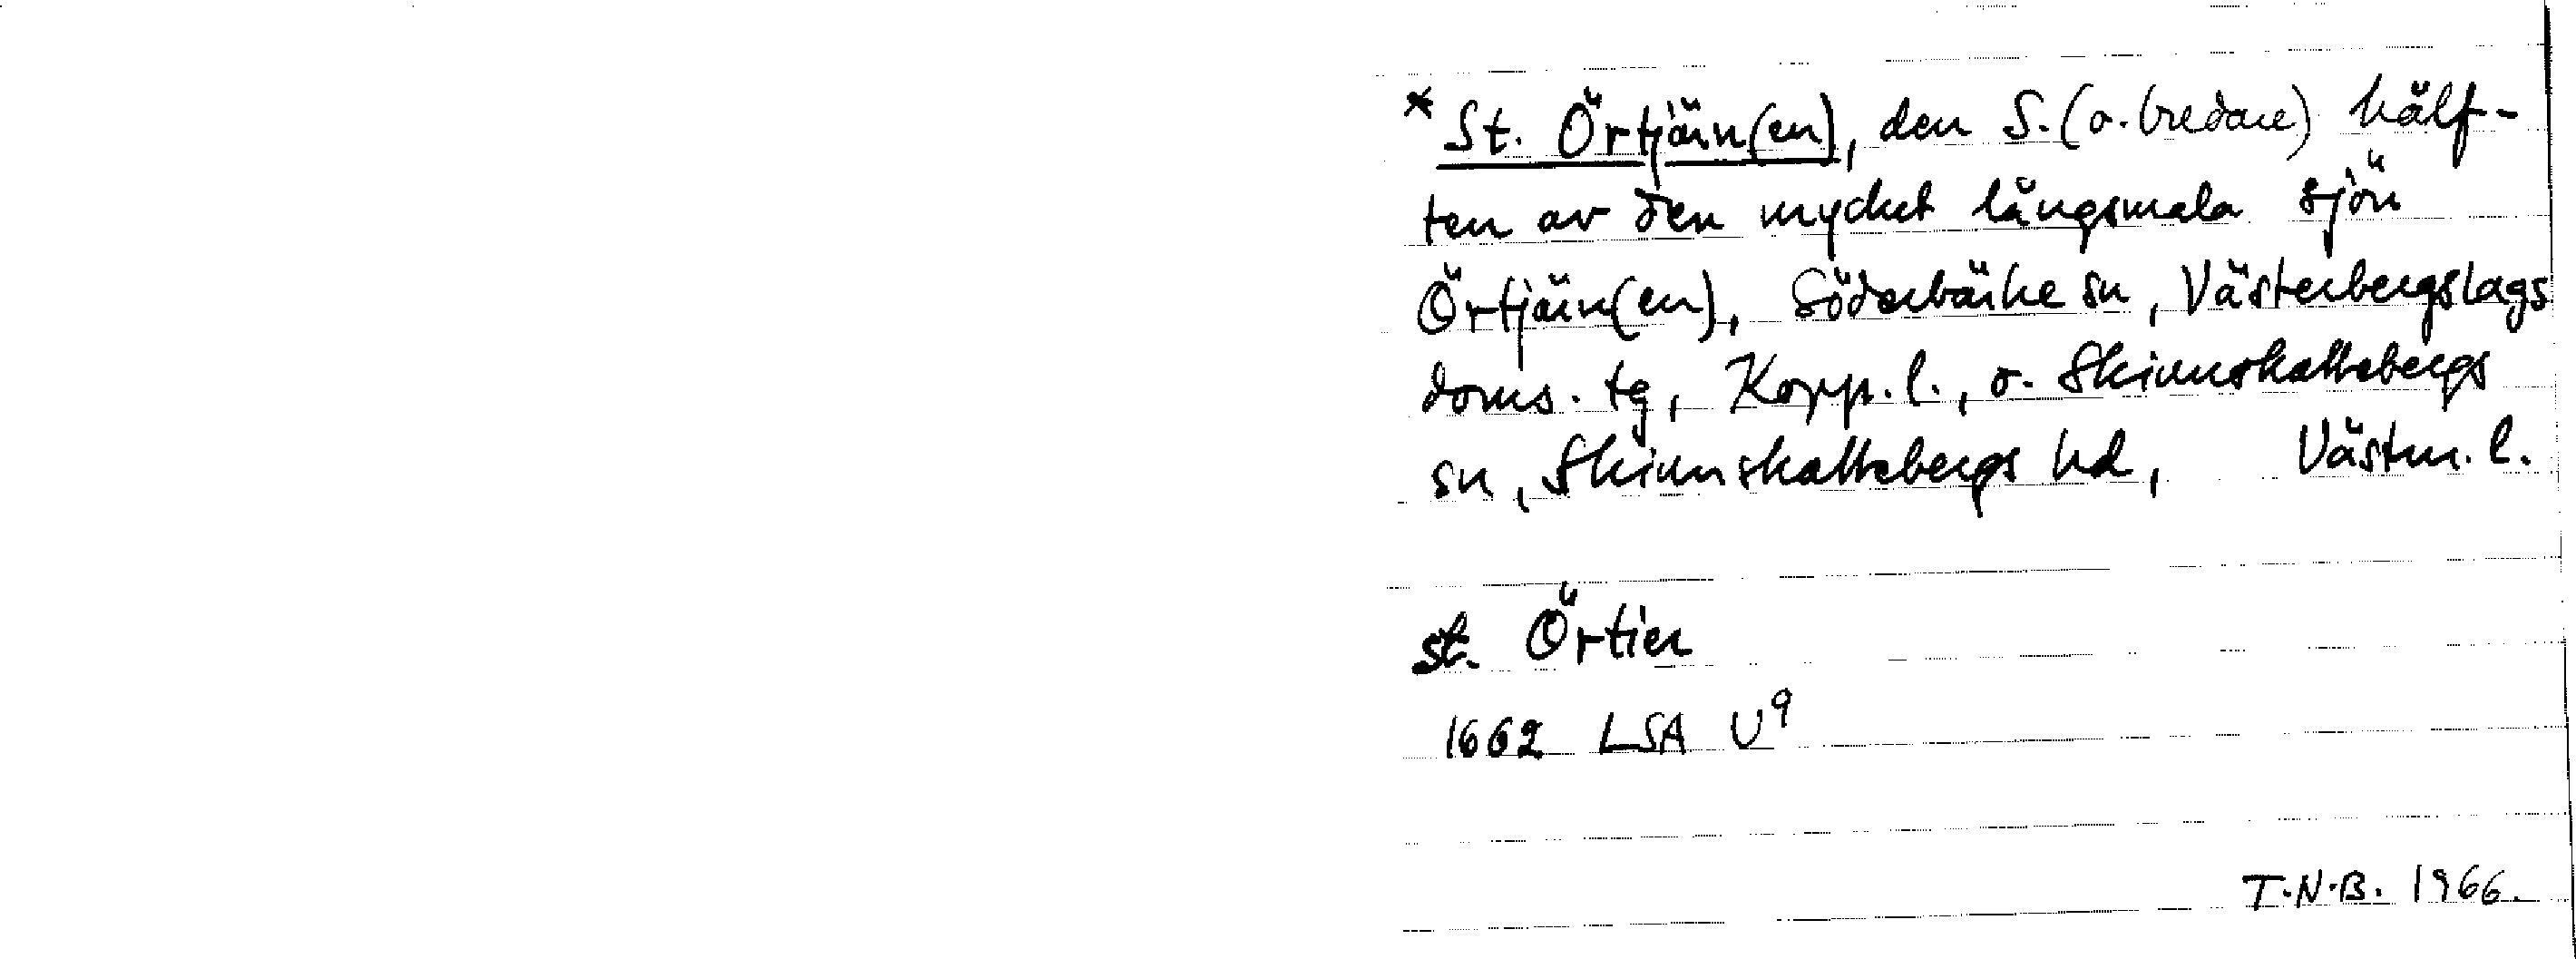 * St. Örtjärn(en), den S. (o. bredare) hälf-
ten av den mycket långsmala sjön
Örtjärn(en), Söderbärke sn, Västerbergslags
doms. tg, Kopp. l., o. Skinnskattebergs
sn, Skinnskattebergs hd, Västm. l.
st. Örtien
1662 LSA U⁹
T.N.B. 1966.